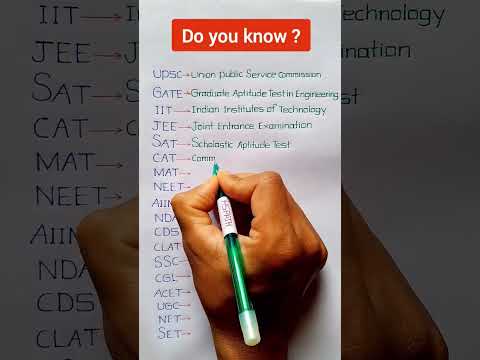 Do you know ?
UPSC → Union Public Service Commission
GATE → Graduate Aptitude Test in Engineering
IIT → Indian Institutes of Technology
JEE → Joint Entrance Examination
SAT → Scholastic Aptitude Test
CAT → Comm
MAT →
NEET →
AIIM
NDA
CDS
CLAT
SSC →
CGL →
ACET →
UGC →
NET →
SET →
IIT →
JEE →
SAT →
CAT →
MAT →
NEET
AIIM
NDA
CDS
CLAT
Technology
ination
est